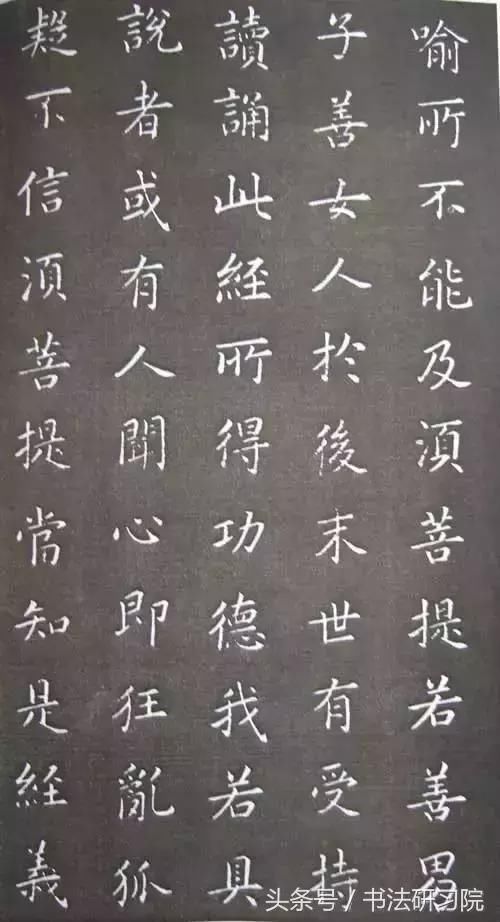 喻所不能及須菩提若善男
子善女人於後末世有受持
讀誦此經所得功德我若具
說者或有人聞心即狂亂狐
疑不信須菩提當知是経義
头条号/书法研习院